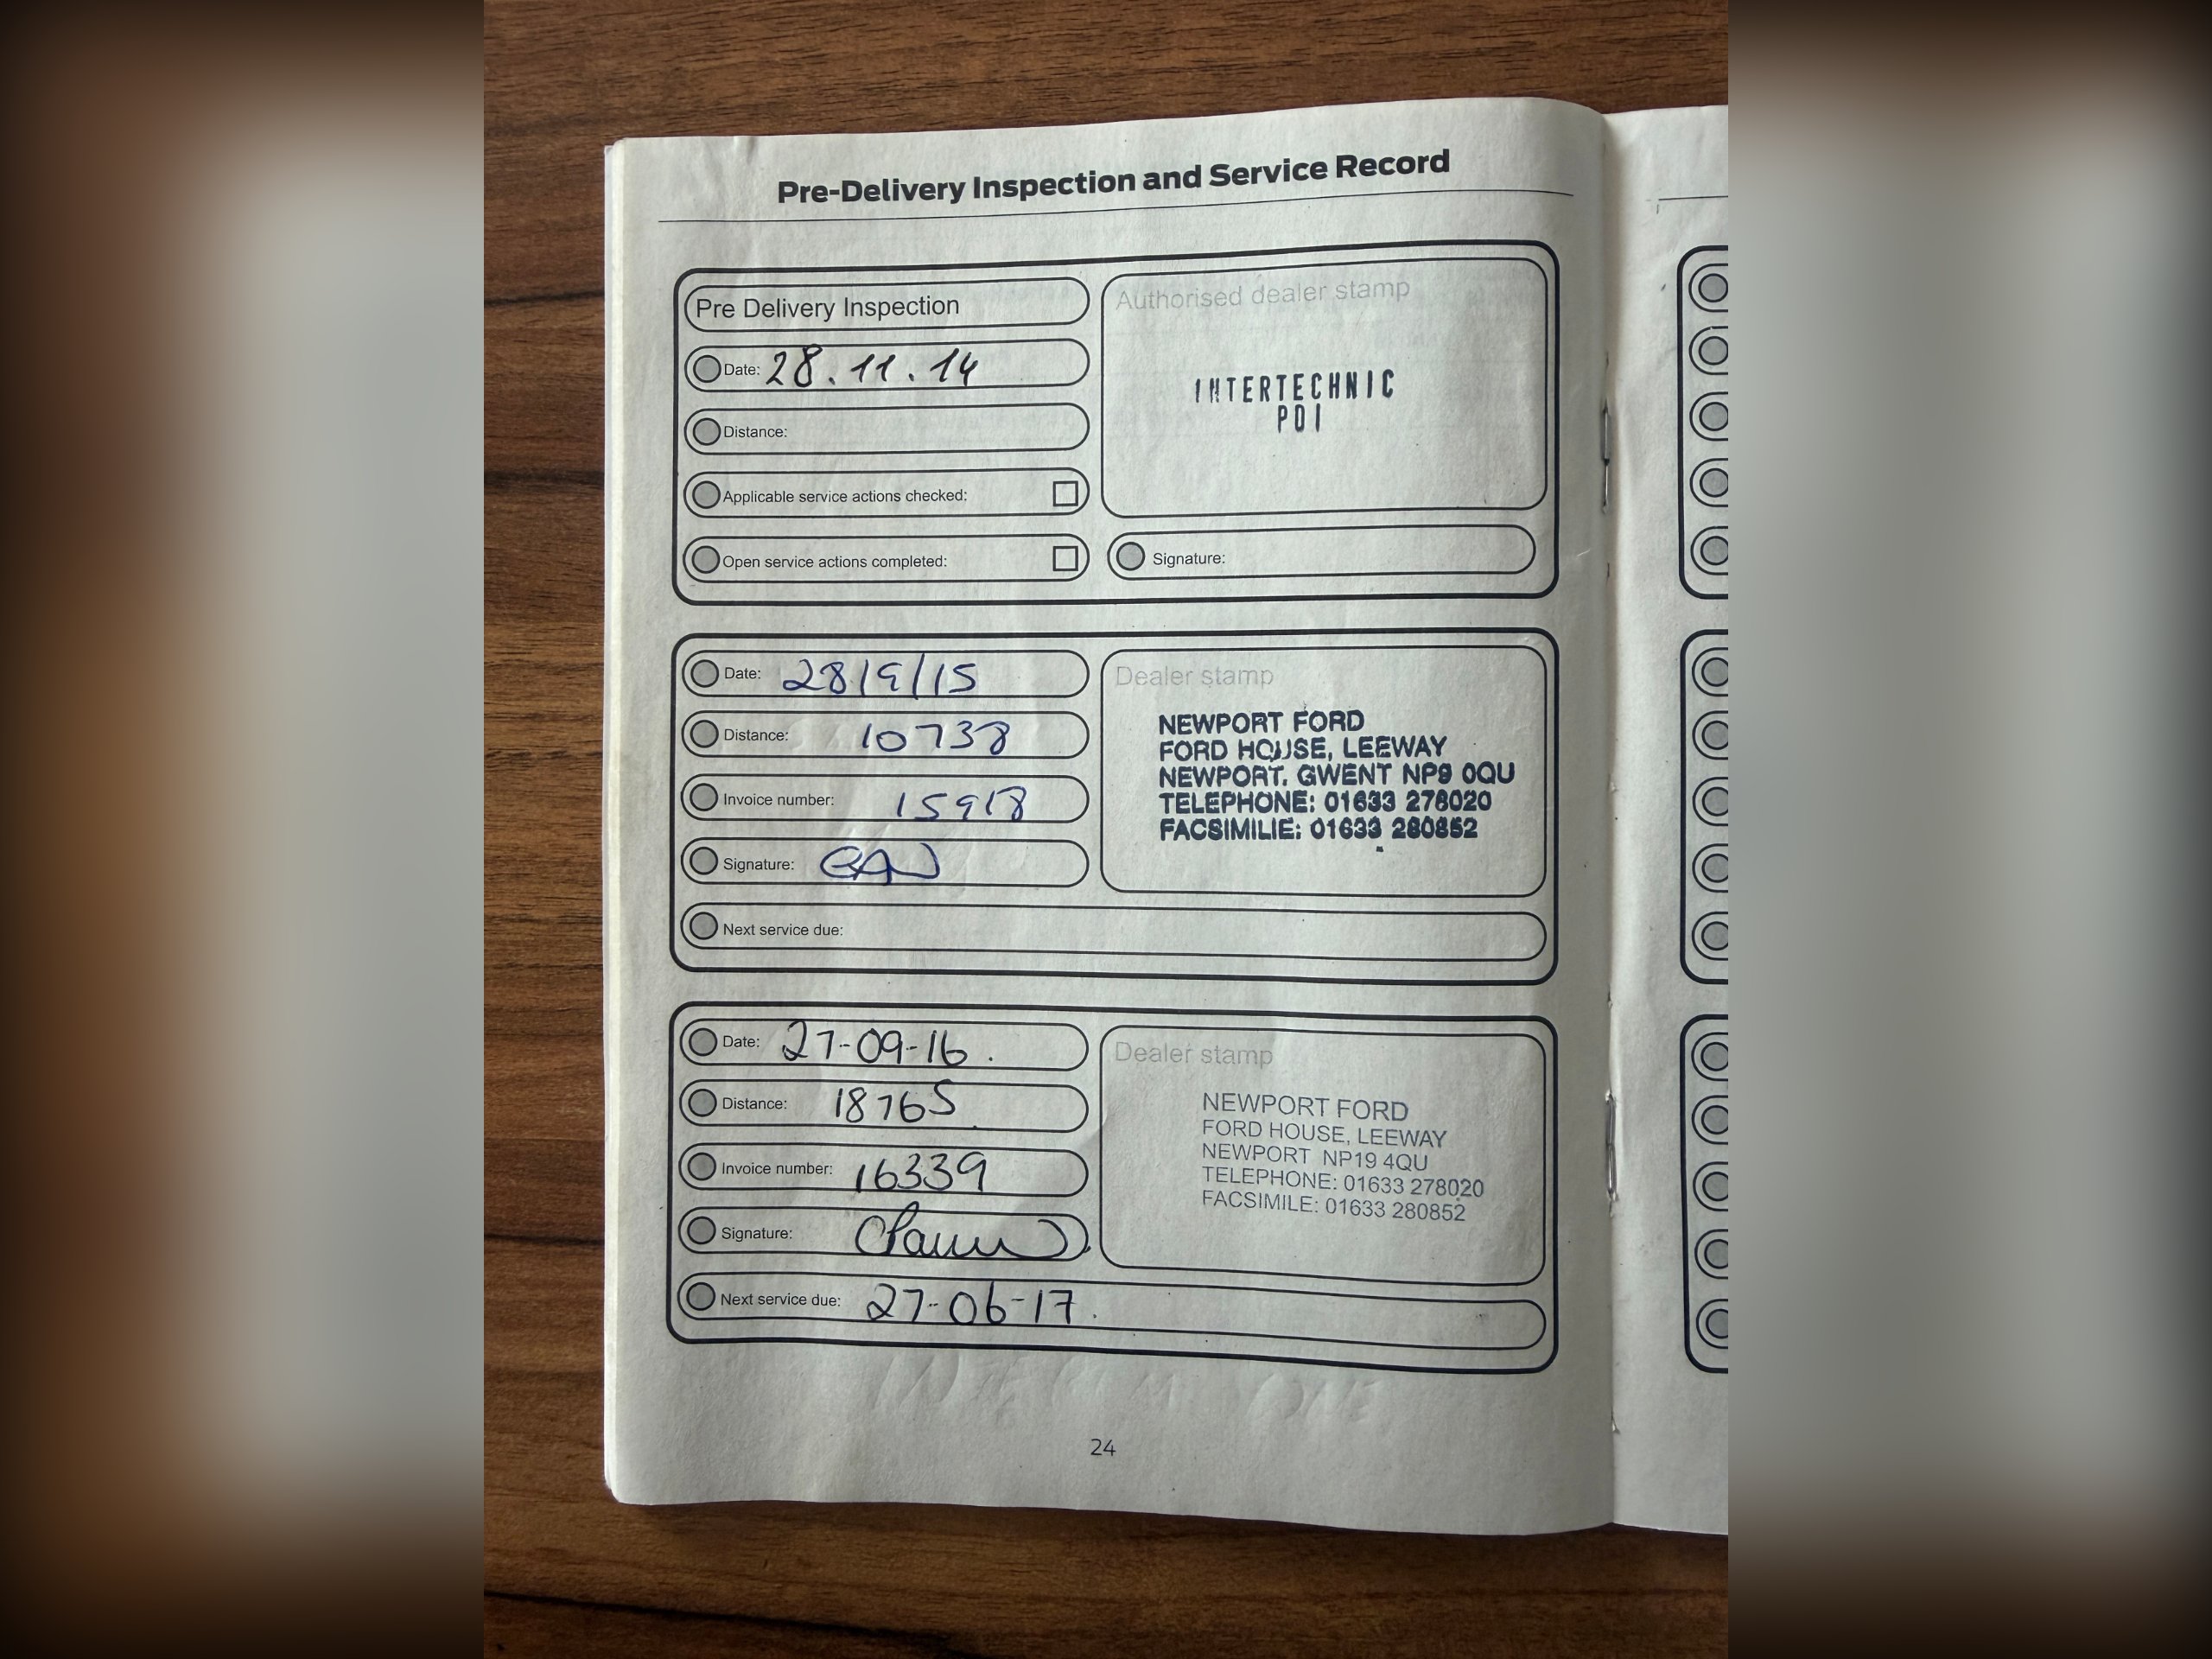 Pre-Delivery Inspection and Service Record
Pre Delivery Inspection
Date: 28.11.14
Distance:
Applicable service actions checked:
Open service actions completed:
Authorised dealer stamp
INTERTECHNIC
PDI
Signature:
Date: 28/9/15
Distance: 10738
Invoice number: 15918
Signature:
Next service due:
Dealer stamp
NEWPORT FORD
FORD HOUSE, LEEWAY
NEWPORT, GWENT NP9 0QU
TELEPHONE: 01633 278020
FACSIMILIE: 01633 280852
Date: 27-09-16.
Distance: 18765
Invoice number: 16339
Signature:
Next service due: 27-06-17.
Dealer stamp
NEWPORT FORD
FORD HOUSE, LEEWAY
NEWPORT NP19 4QU
TELEPHONE: 01633 278020
FACSIMILE: 01633 280852
24